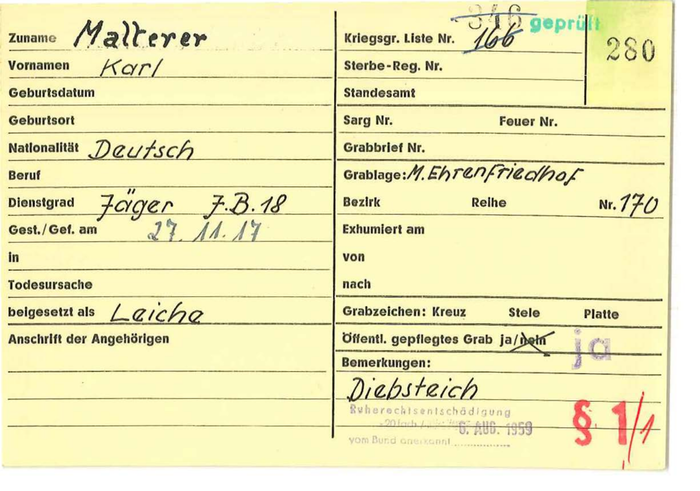 Zuname Malterer
Vornamen Karl
Geburtsdatum
Geburtsort
Nationalität Deutsch
Beruf
Dienstgrad Jäger J.B.18
Gest./Gef. am 27. 11. 17
in
Todesursache
beigesetzt als Leiche
Anschrift der Angehörigen
346 geprüft
Kriegsgr. Liste Nr. 166
280
Sterbe-Reg. Nr.
Standesamt
Sarg Nr. Feuer Nr.
Grabbrief Nr.
Grablage: M. Ehrenfriedhof
Bezirk Reihe Nr. 170
Exhumiert am
von
nach
Grabzeichen: Kreuz Stele Platte
Öffentl. gepflegtes Grab ja/nein ja
Bemerkungen:
Diebsteich
Ruherechtsentschädigung
6. AUG. 1959
vom Bund anerkannt
§ 1/1